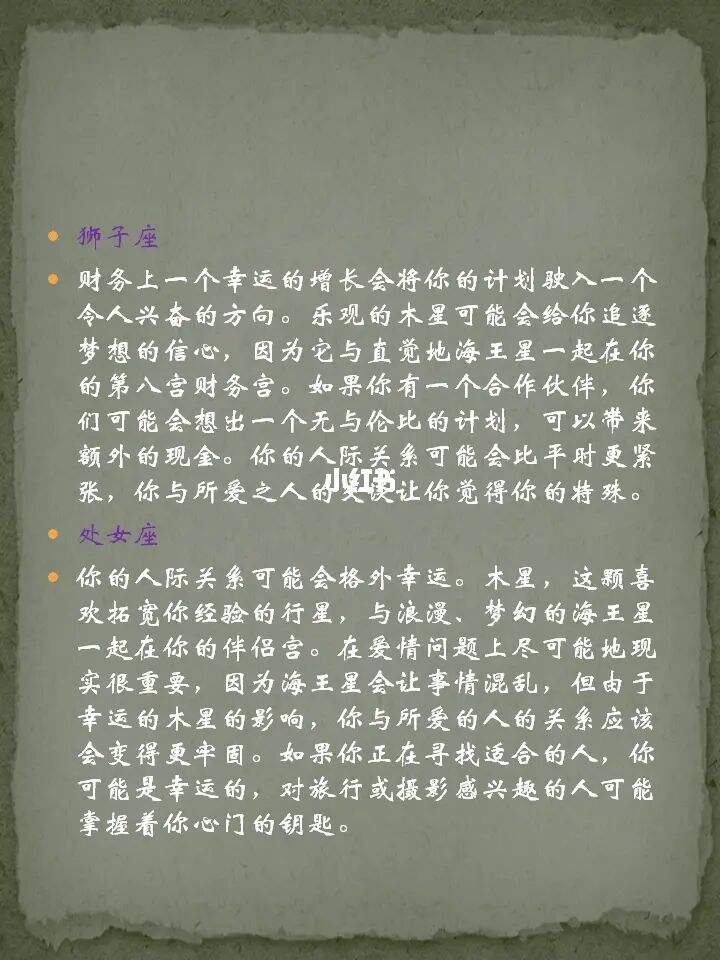 狮子座
财务上一个幸运的增长会将你的计划驶入一个
令人兴奋的方向。乐观的木星可能会给你追逐
梦想的信心，因为它与直觉地海王星一起在你
的第八宫财务宫。如果你有一个合作伙伴，你
们可能会想出一个无与伦比的计划，可以带来
额外的现金。你的人际关系可能会比平时更紧
张，你与所爱之人的让你觉得你的特殊。
小红书
处女座
你的人际关系可能会格外幸运。木星，这颗喜
欢拓宽你经验的行星，与浪漫、梦幻的海王星
一起在你的伴侣宫。在爱情问题上尽可能地现
实很重要，因为海王星会让事情混乱，但由于
幸运的木星的影响，你与所爱的人的关系应该
会变得更牢固。如果你正在寻找适合的人，你
可能是幸运的，对旅行或摄影感兴趣的人可能
掌握着你心门的钥匙。